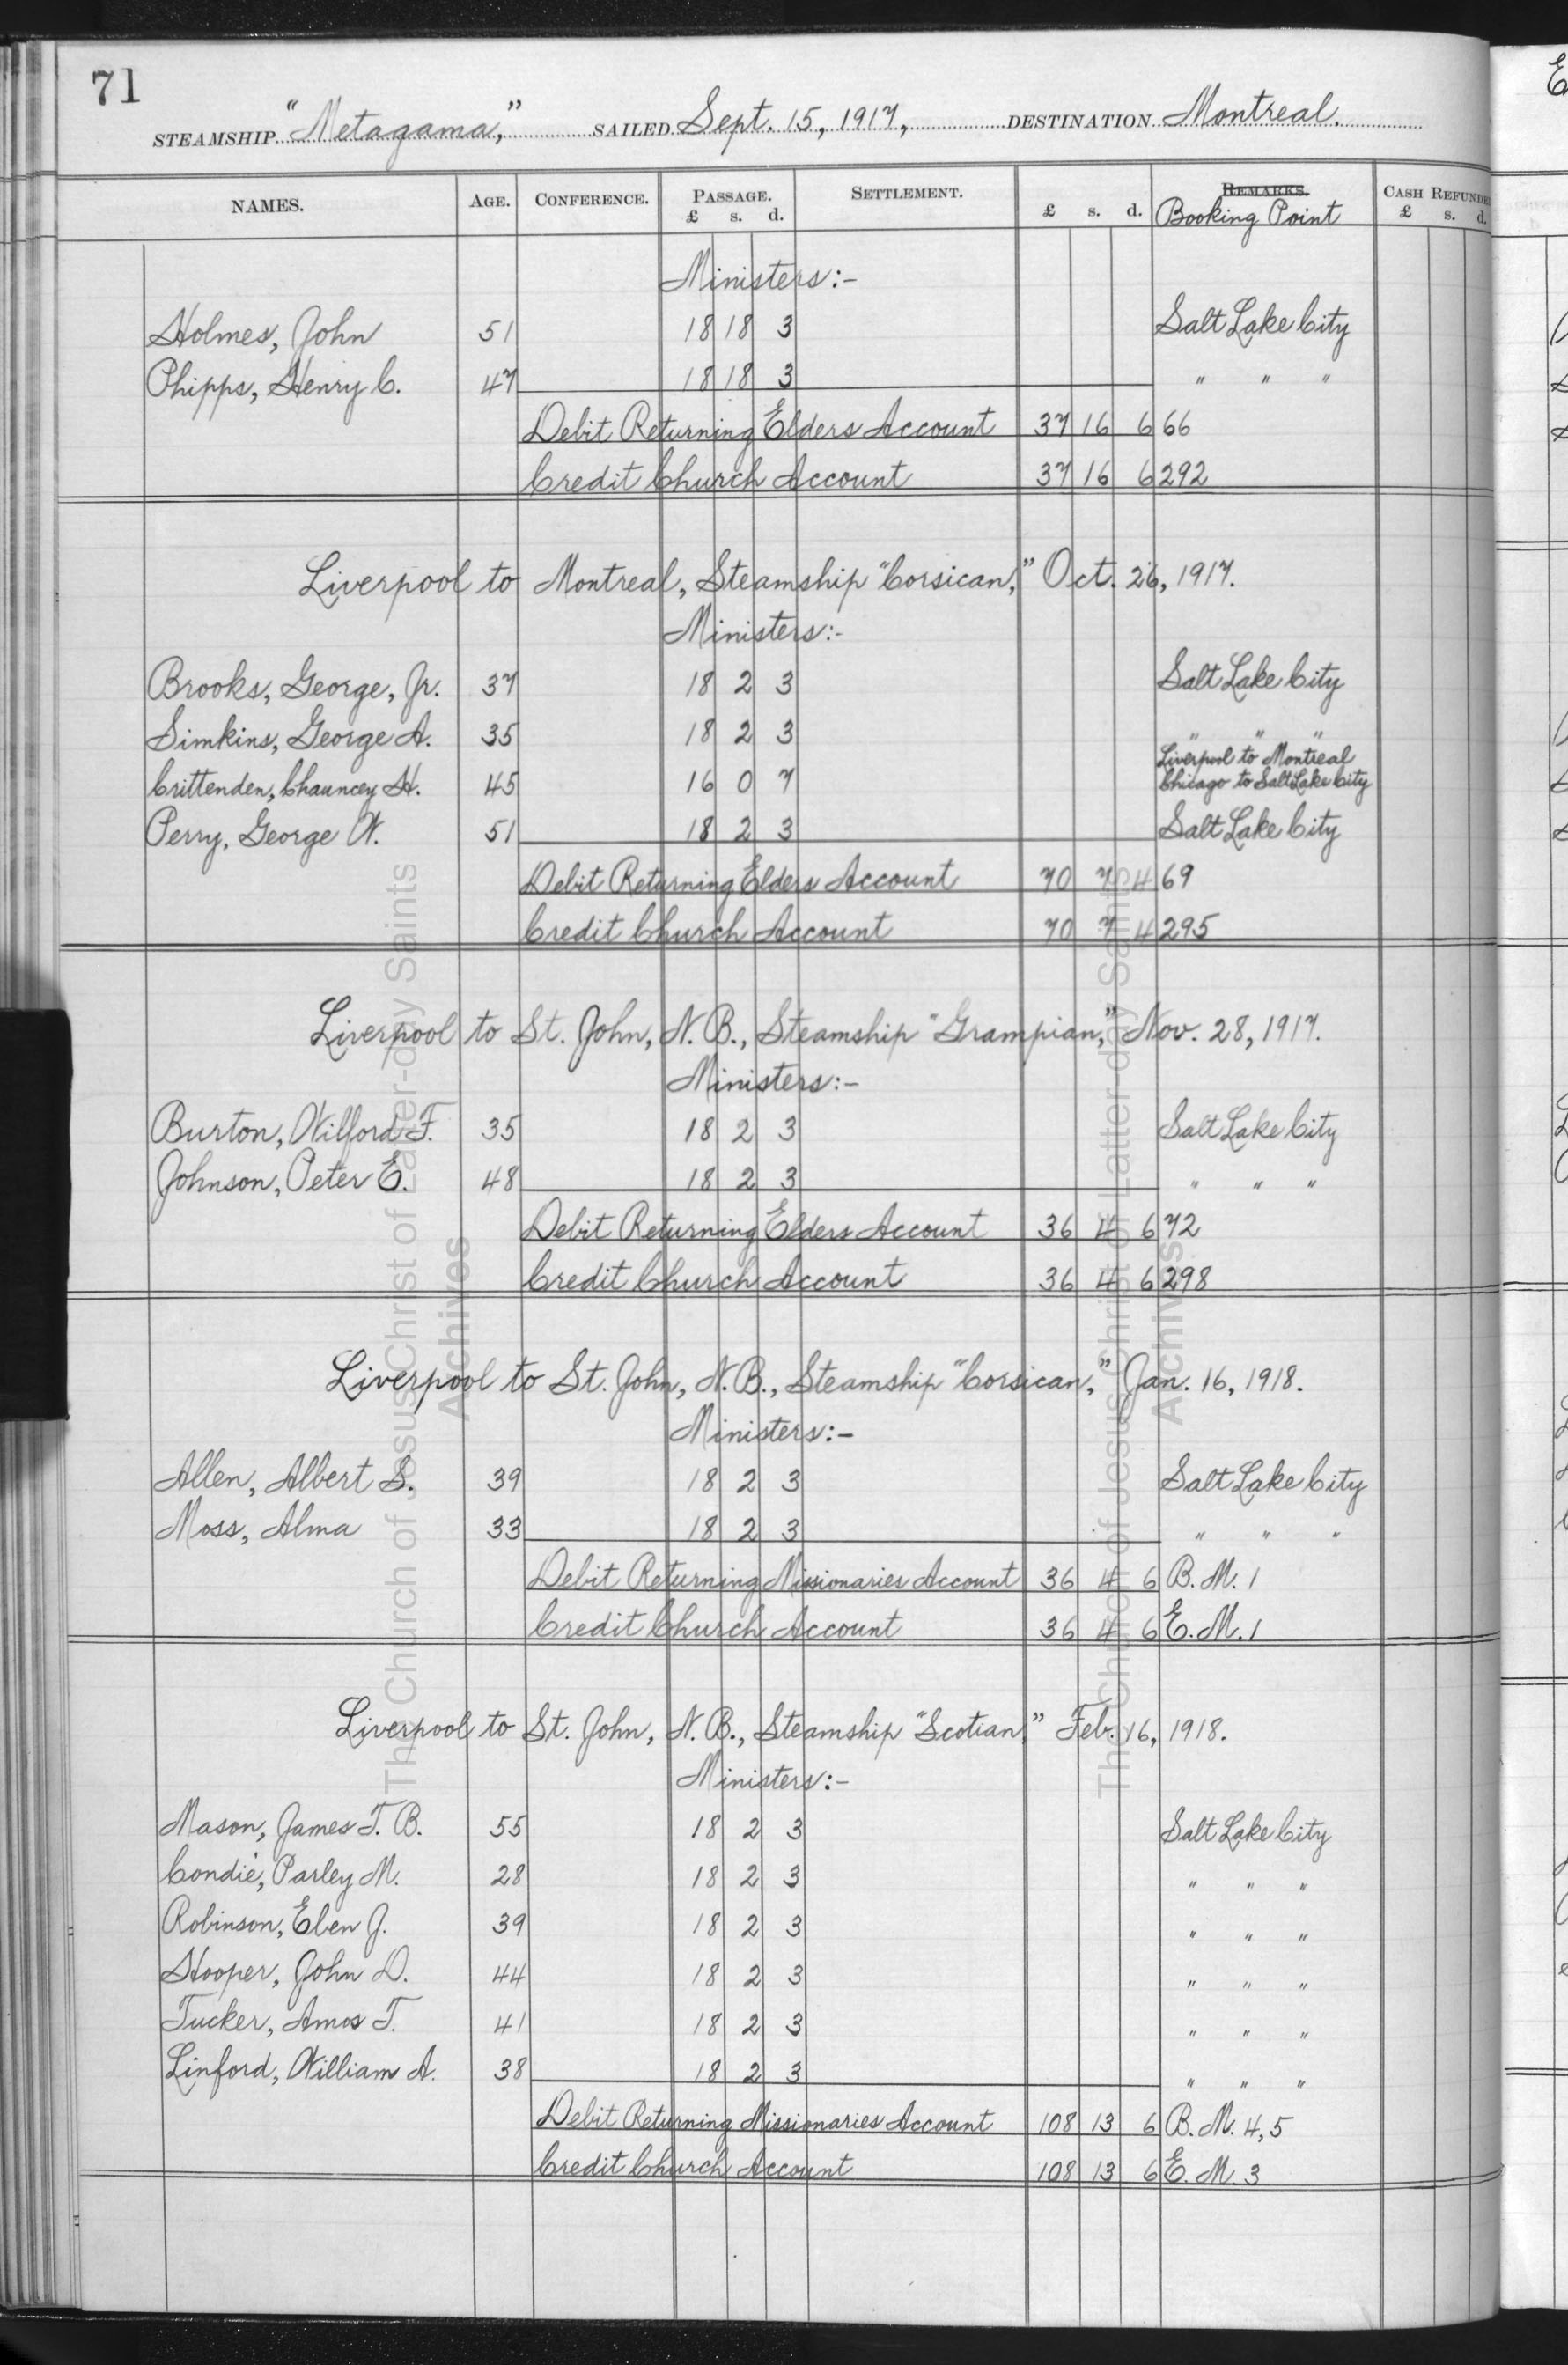 71
STEAMSHIP "Metagama," SAILED Sept. 15, 1917, DESTINATION Montreal.
NAMES. AGE. CONFERENCE. PASSAGE. £ s. d. SETTLEMENT. £ s. d. REMARKS. Booking Point CASH REFUNDE £ s. d.
Ministers:-
Holmes, John 51 18 18 3 Salt Lake City
Phipps, Henry C. 47 18 18 3 " " "
Debit Returning Elders Account 37 16 6 66
Credit Church Account 37 16 6 292
Liverpool to Montreal, Steamship "Corsican," Oct. 26, 1917.
Ministers:-
Brooks, George, Jr. 37 18 2 3 Salt Lake City
Simkins, George A. 35 18 2 3 " " "
Crittenden, Chauncey H. 45 16 0 7 Liverpool to Montreal
Chicago to Salt Lake City
Perry, George W. 51 18 2 3 Salt Lake City
Debit Returning Elders Account 70 7 4 69
Credit Church Account 70 7 4 295
Liverpool to St. John, N.B., Steamship "Grampian," Nov. 28, 1917.
Ministers:-
Burton, Wilford F. 35 18 2 3 Salt Lake City
Johnson, Peter E. 48 18 2 3 " " "
Debit Returning Elders Account 36 4 6 72
Credit Church Account 36 4 6 298
Liverpool to St. John, N.B., Steamship "Corsican," Jan. 16, 1918.
Ministers:-
Allen, Albert S. 39 18 2 3 Salt Lake City
Moss, Alma 33 18 2 3 " " "
Debit Returning Missionaries Account 36 4 6 B.M. 1
Credit Church Account 36 4 6 E.M. 1
Liverpool to St. John, N.B., Steamship "Scotian," Feb. 16, 1918.
Ministers:-
Mason, James T. B. 55 18 2 3 Salt Lake City
Condie, Parley M. 28 18 2 3 " " "
Robinson, Eben J. 39 18 2 3 " " "
Hooper, John D. 44 18 2 3 " " "
Tucker, Amos T. 41 18 2 3 " " "
Linford, William A. 38 18 2 3 " " "
Debit Returning Missionaries Account 108 13 6 B.M. 4,5
Credit Church Account 108 13 6 E.M. 3
The Church of Jesus Christ of Latter-day Saints
Archives
The Church of Jesus Christ of Latter-day Saints
Achives